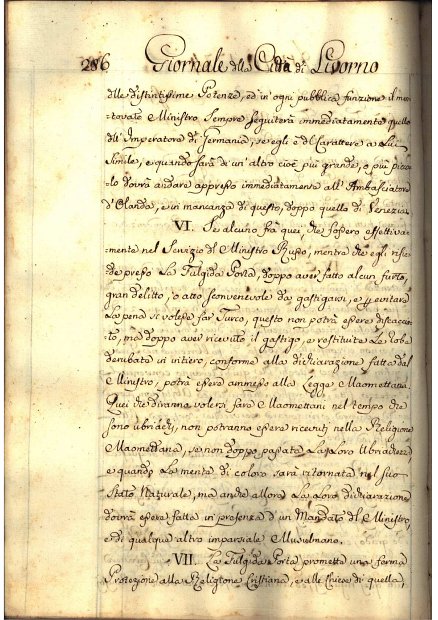 286 Giornale della Città di Livorno
delle distintissime Potenze, ed in ogni pubblica funzione il men-
tovato Ministro sempre seguiterà immediatamente quello
dell'Imperatore di Germania, se egli è del Carattere a Lui
Simile, e quando sarà di un'altro cioè più grande, o più picco-
lo dovrà andare appresso immediatamente all'Ambasciatore
d'Olanda, e in mancanza di questo, doppo quello di Venezia.
VI. Se alcuno frà quei, che fossero effettiva-
mente nel Servizio del Ministro Russo, mentre che egli risie-
de presso La Fulgida Porta, doppo aver fatto alcun furto,
gran delitto, o atto sconvenevole da gastigarsi, e per evitare
La pena si volesse far Turco, questo non potrà essere discaccia-
to, ma doppo aver ricevuto il gastigo, e restituite La robe
derubate in intiero, conforme alla dichiarazione fatta dal
Ministro, potrà essere ammesso alla Legge Maomettana.
Quei che diranno volersi fare Maomettani nel tempo che
sono ubriachi, non potranno essere ricevuti nella Religione
Maomettana, se non doppo passata La Loro Ubriachezza
e quando La mente di coloro sarà ritornata nel suo
Stato Naturale, ma anche allora La Loro dichiarazione
dovrà essere fatta in presenza d'un Mandato del Ministro,
e di qualque altro imparziale Musulmano.
VII. La Fulgida Porta promette una ferma
Protezione alla Religione Cristiana, e alle Chiese di quella,